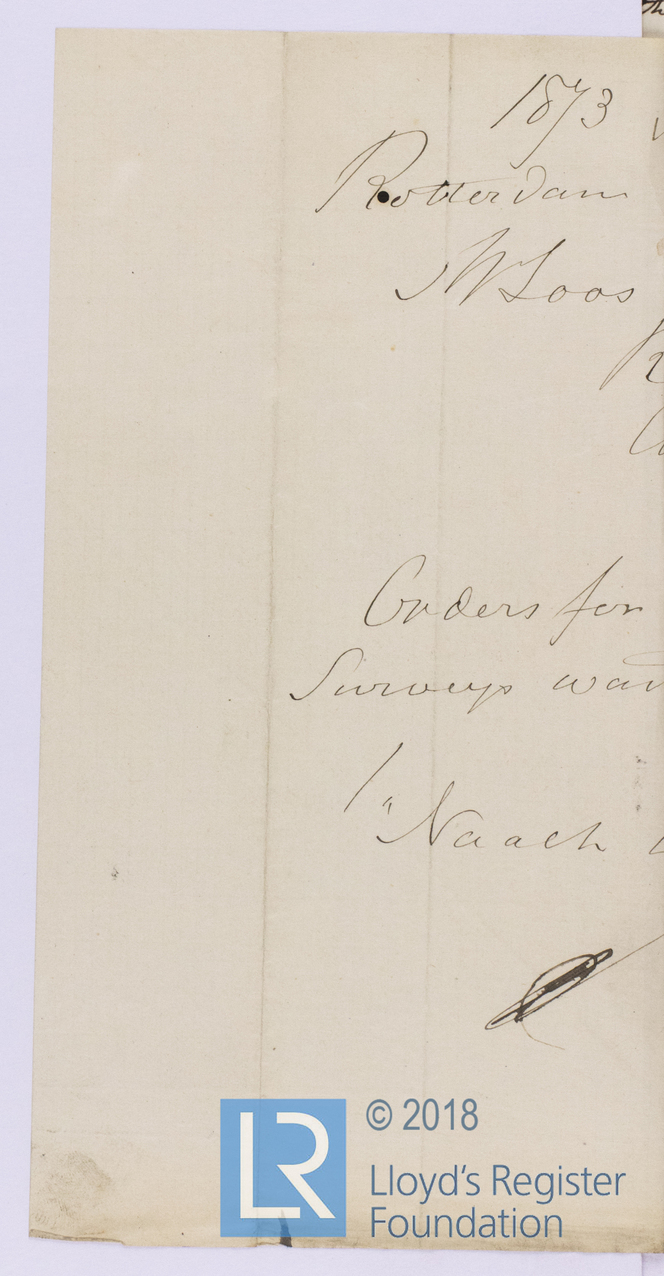 1873
Rotterdam
W Loos
Orders for
Surveys
"Naach
© 2018
LR
Lloyd's Register
Foundation